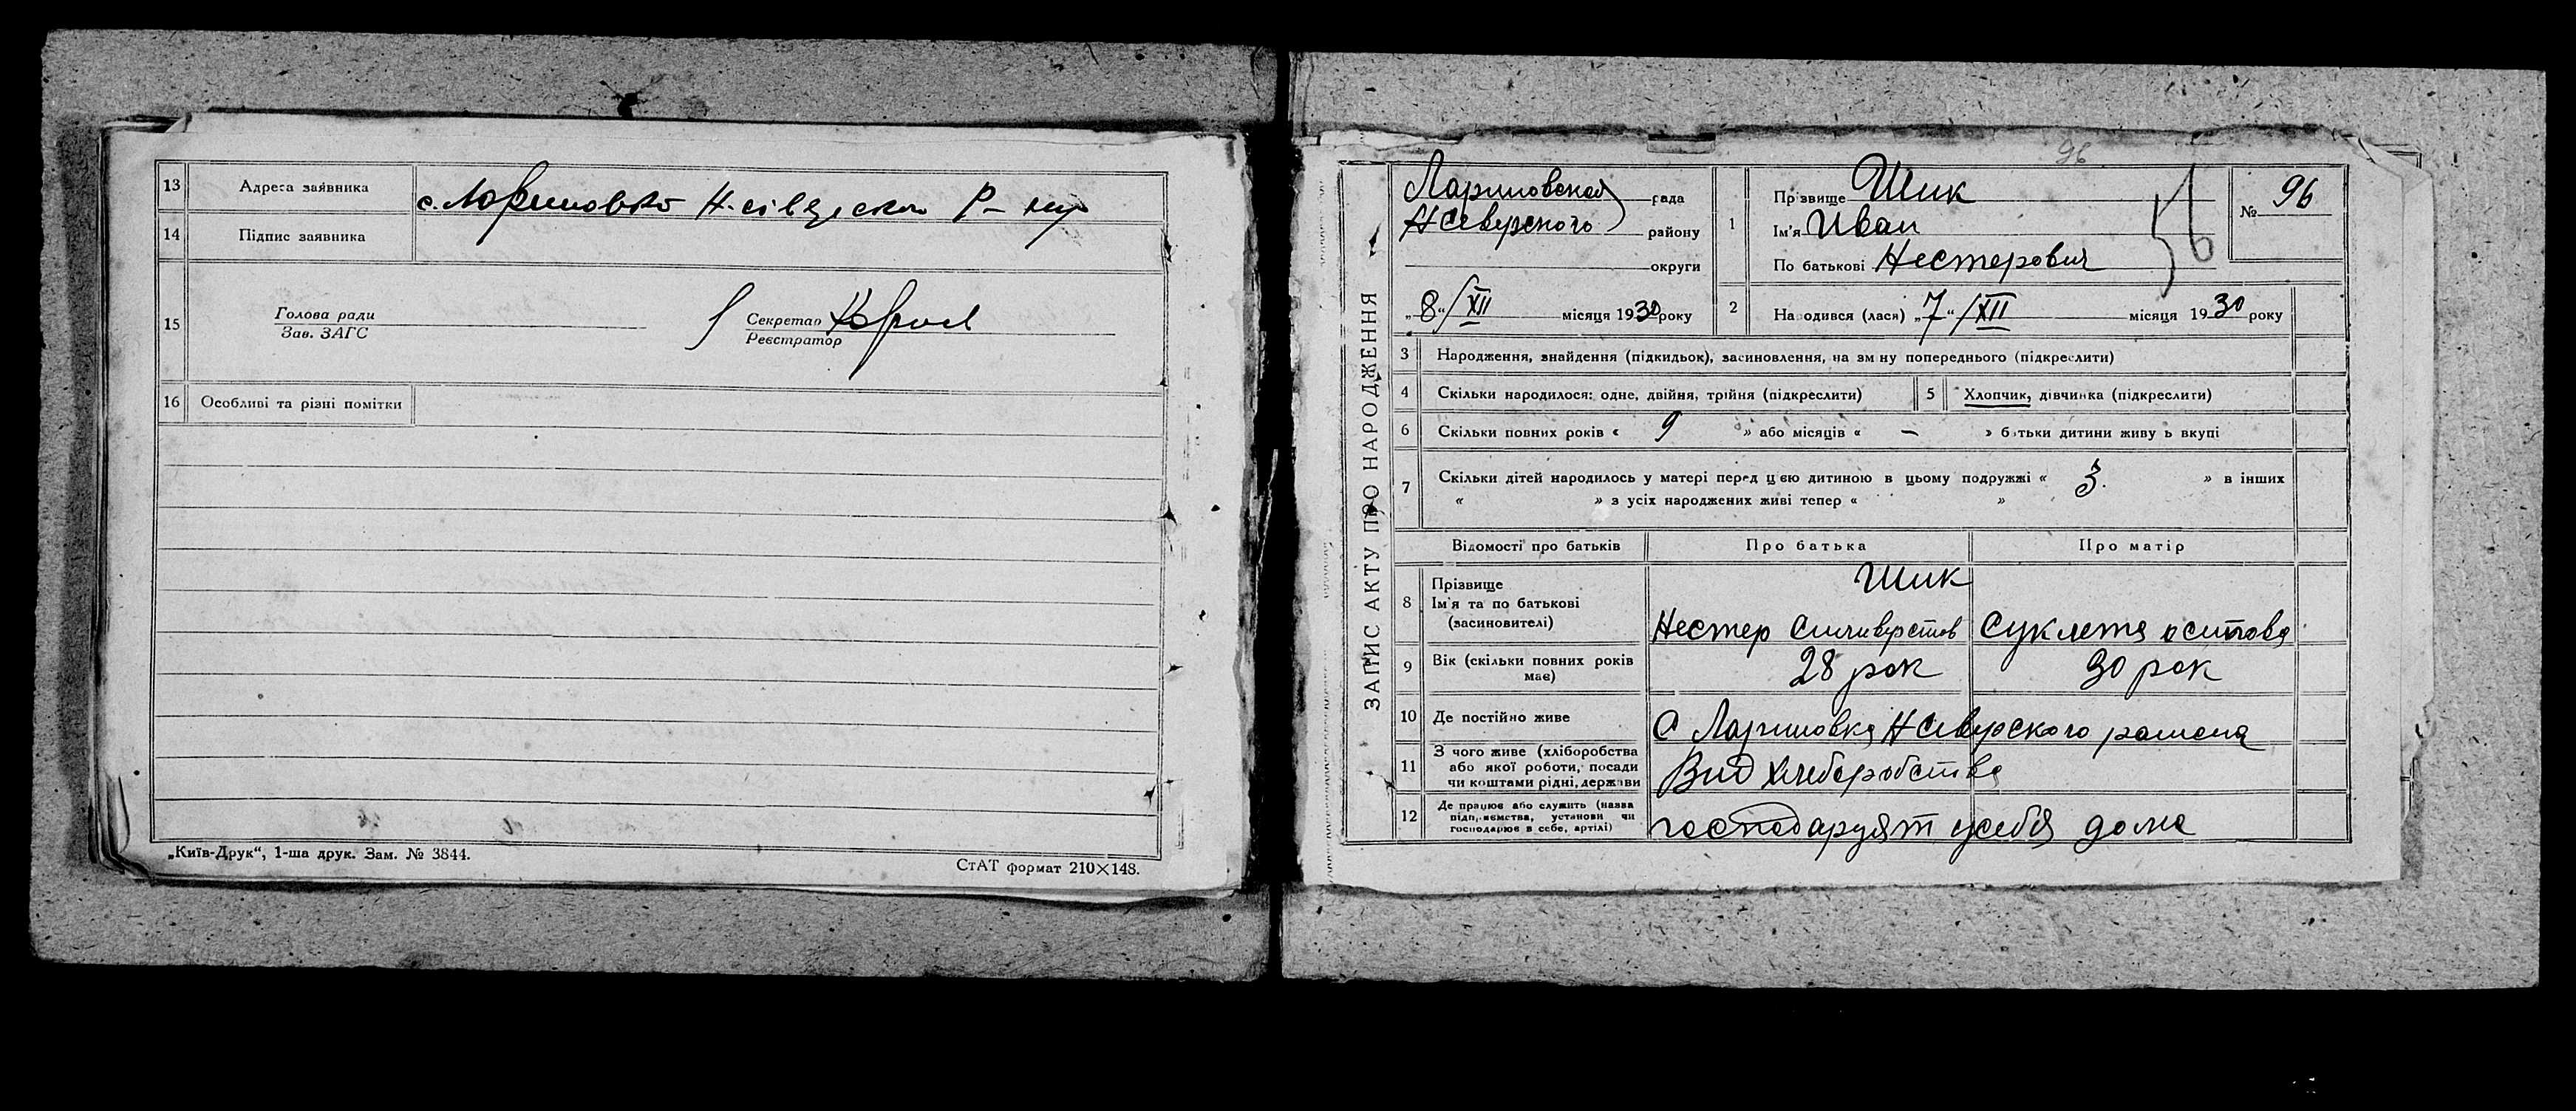 13 Адреса заявника с. Лариновка Н.-сівдеского Р-ну
14 Підпис заявника
15 Голова ради
Зав. ЗАГС
Секретар
Реєстратор
16 Особливі та різні помітки
„Київ-Друк“, 1-ша друк. Зам. № 3844.
СтАТ формат 210×148.
96
ЗАПИС АКТУ ПРО НАРОДЖЕННЯ
Лариновская рада
НСеверского району
округи
„8“/XII місяця 1930 року
1 Прізвище Шик
Ім'я Иван
По батькові Нестерович
№ 96
2 Народився (лася) „7“/XII місяця 1930 року
3 Народження, знайдення (підкидьок), засиновлення, на зміну попереднього (підкреслити)
4 Скільки народилося: одне, двійня, трійня (підкреслити)
5 Хлопчик, дівчинка (підкреслити)
6 Скільки повних років « 9 » або місяців « — » батьки дитини живуть вкупі
7 Скільки дітей народилось у матері перед цією дитиною в цьому подружжі « 3. » в інших
« » з усіх народжених живі тепер « »
Відомості про батьків Про батька Про матір
8 Прізвище
Ім'я та по батькові
(засиновителі)
Шик
Нестер Силиверстов
осипова
9 Вік (скільки повних років має) 28 рок 30 рок
10 Де постійно живе С Лариновка НСеверского раиона
11 З чого живе (хліборобства
або якої роботи, посади
чи коштами рідні, держави
Вид хлеборобства
12 Де працює або служить (назва
підприємства, установи чи
господарює в себе, артілі)
господаруят усебя дома